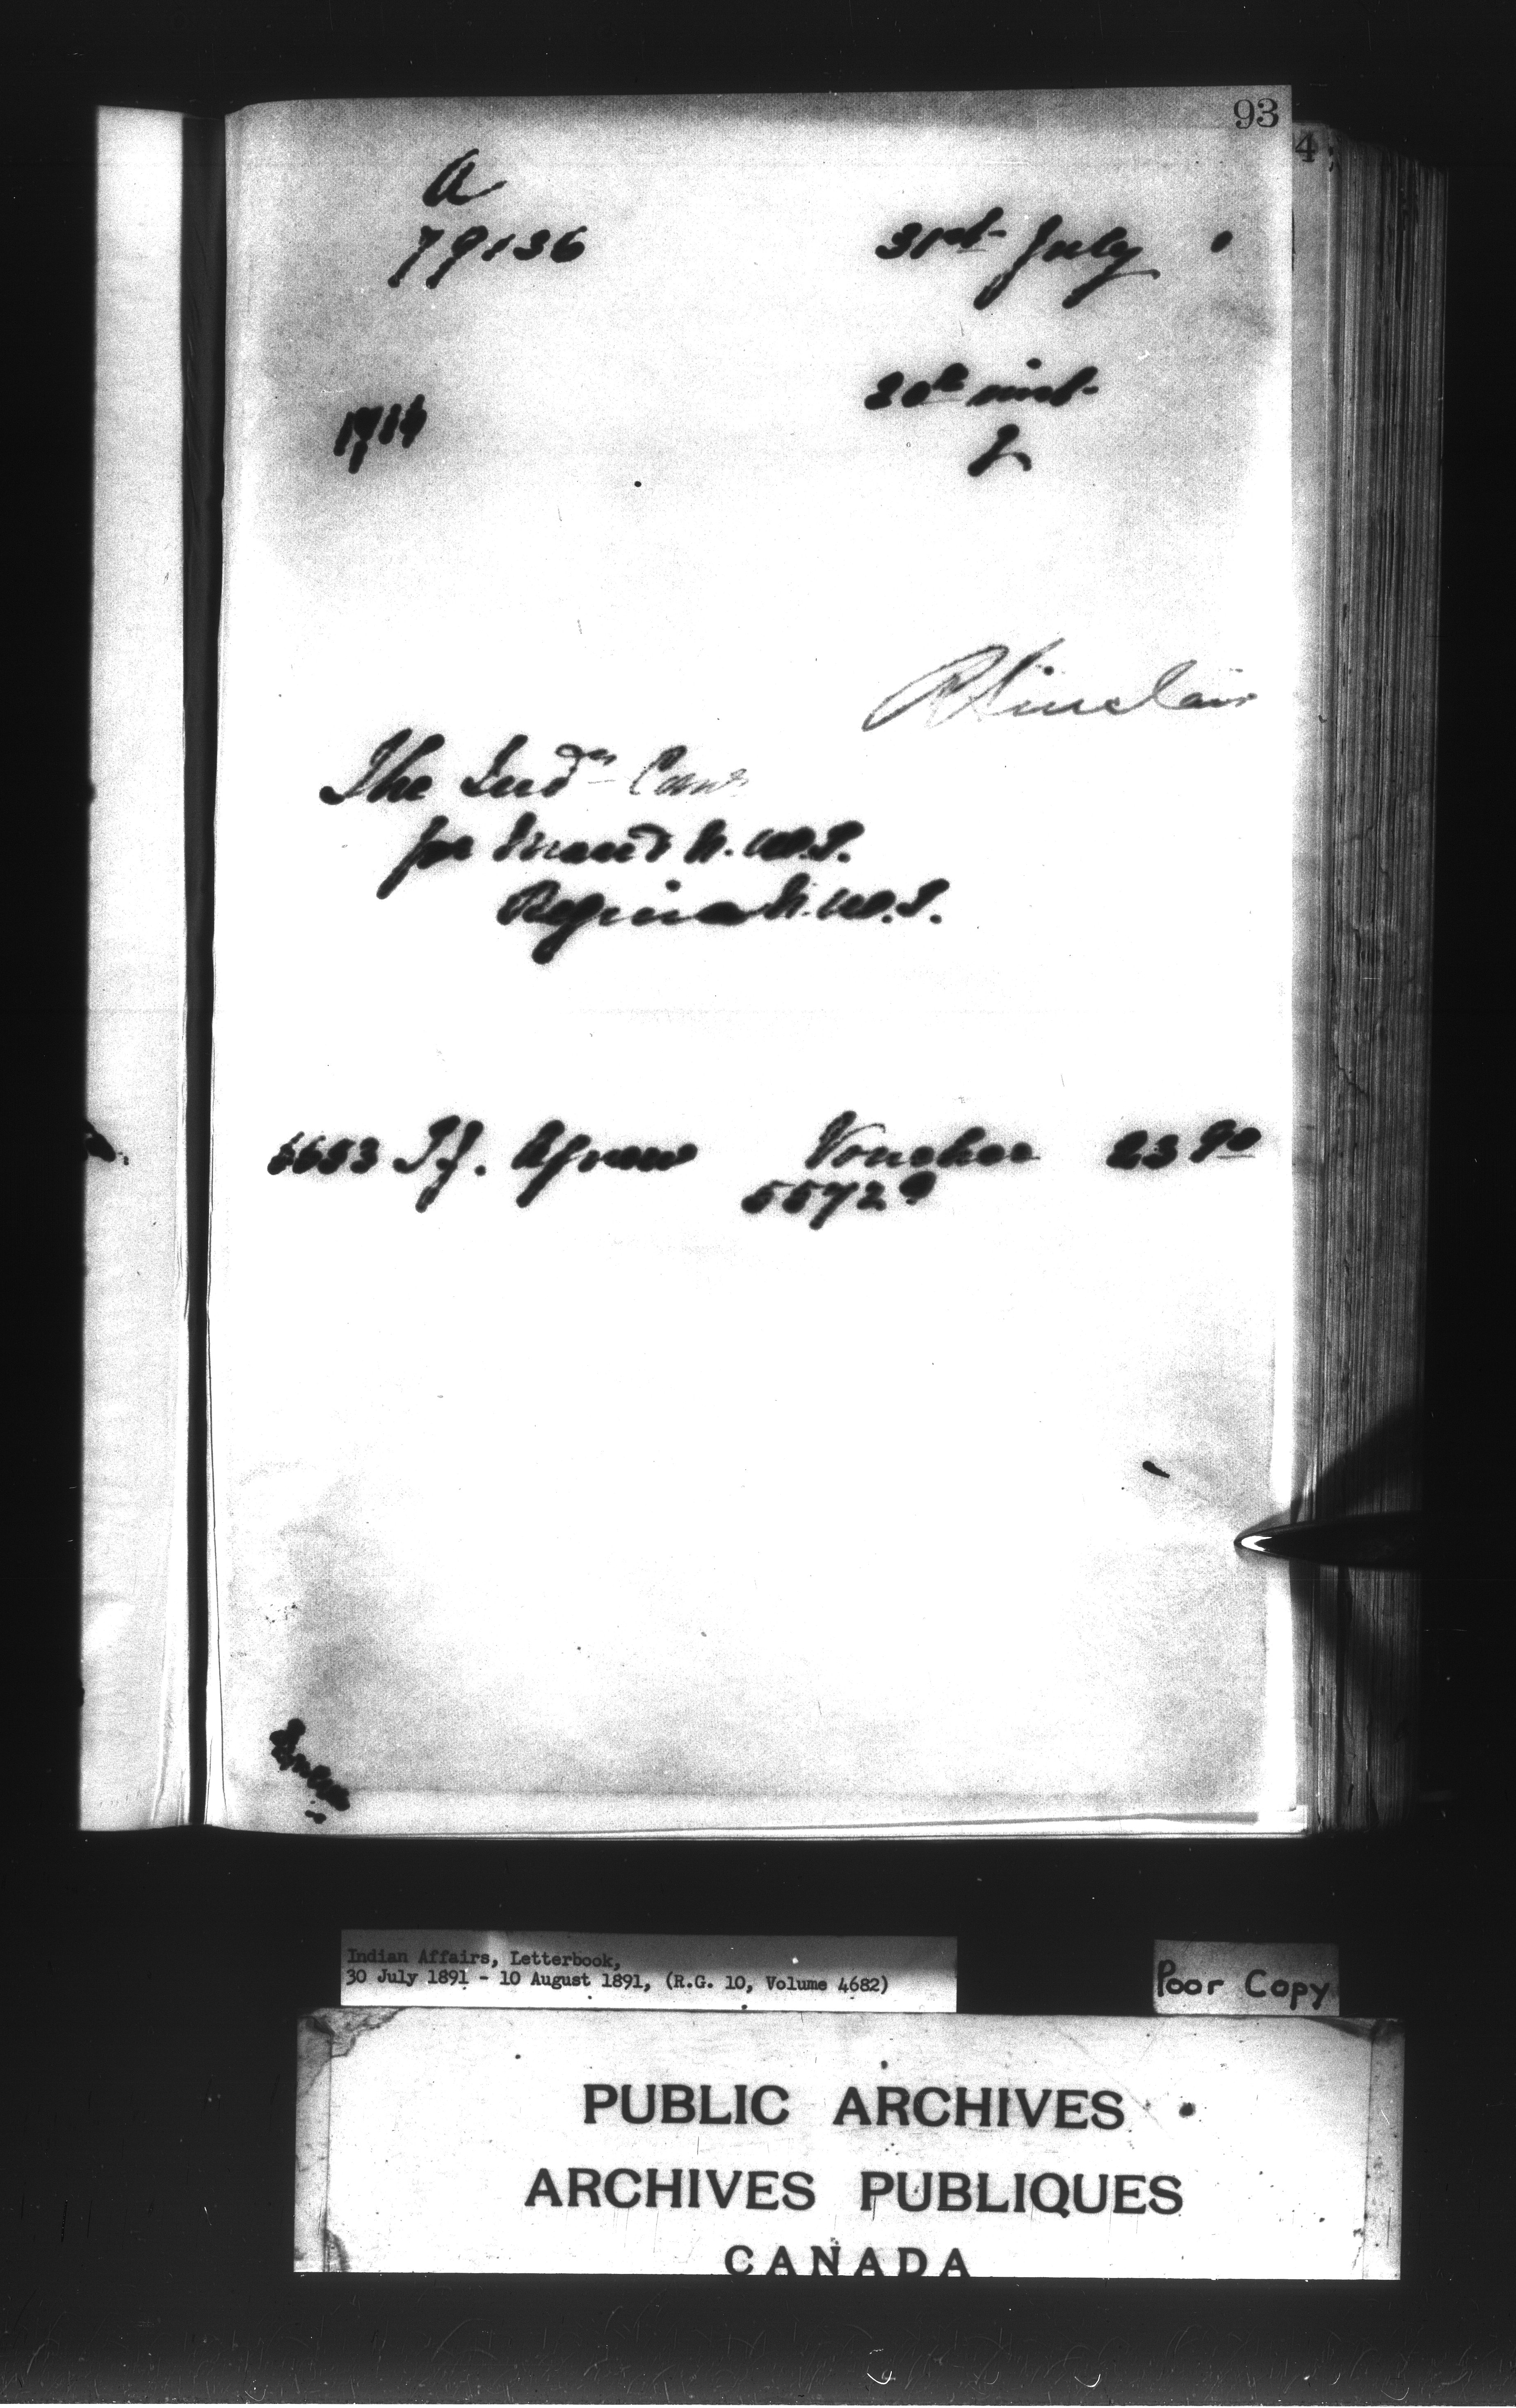 93
4
A
79136
31st July
1714
20th inst
R Sinclair
The Indn Com
for Man & N.W.T.
Regina N.W.T.
Voucher 23 90
55729
Indian Affairs, Letterbook,
30 July 1891 - 10 August 1891, (R.G. 10, Volume 4682)
Poor Copy
PUBLIC ARCHIVES
ARCHIVES PUBLIQUES
CANADA